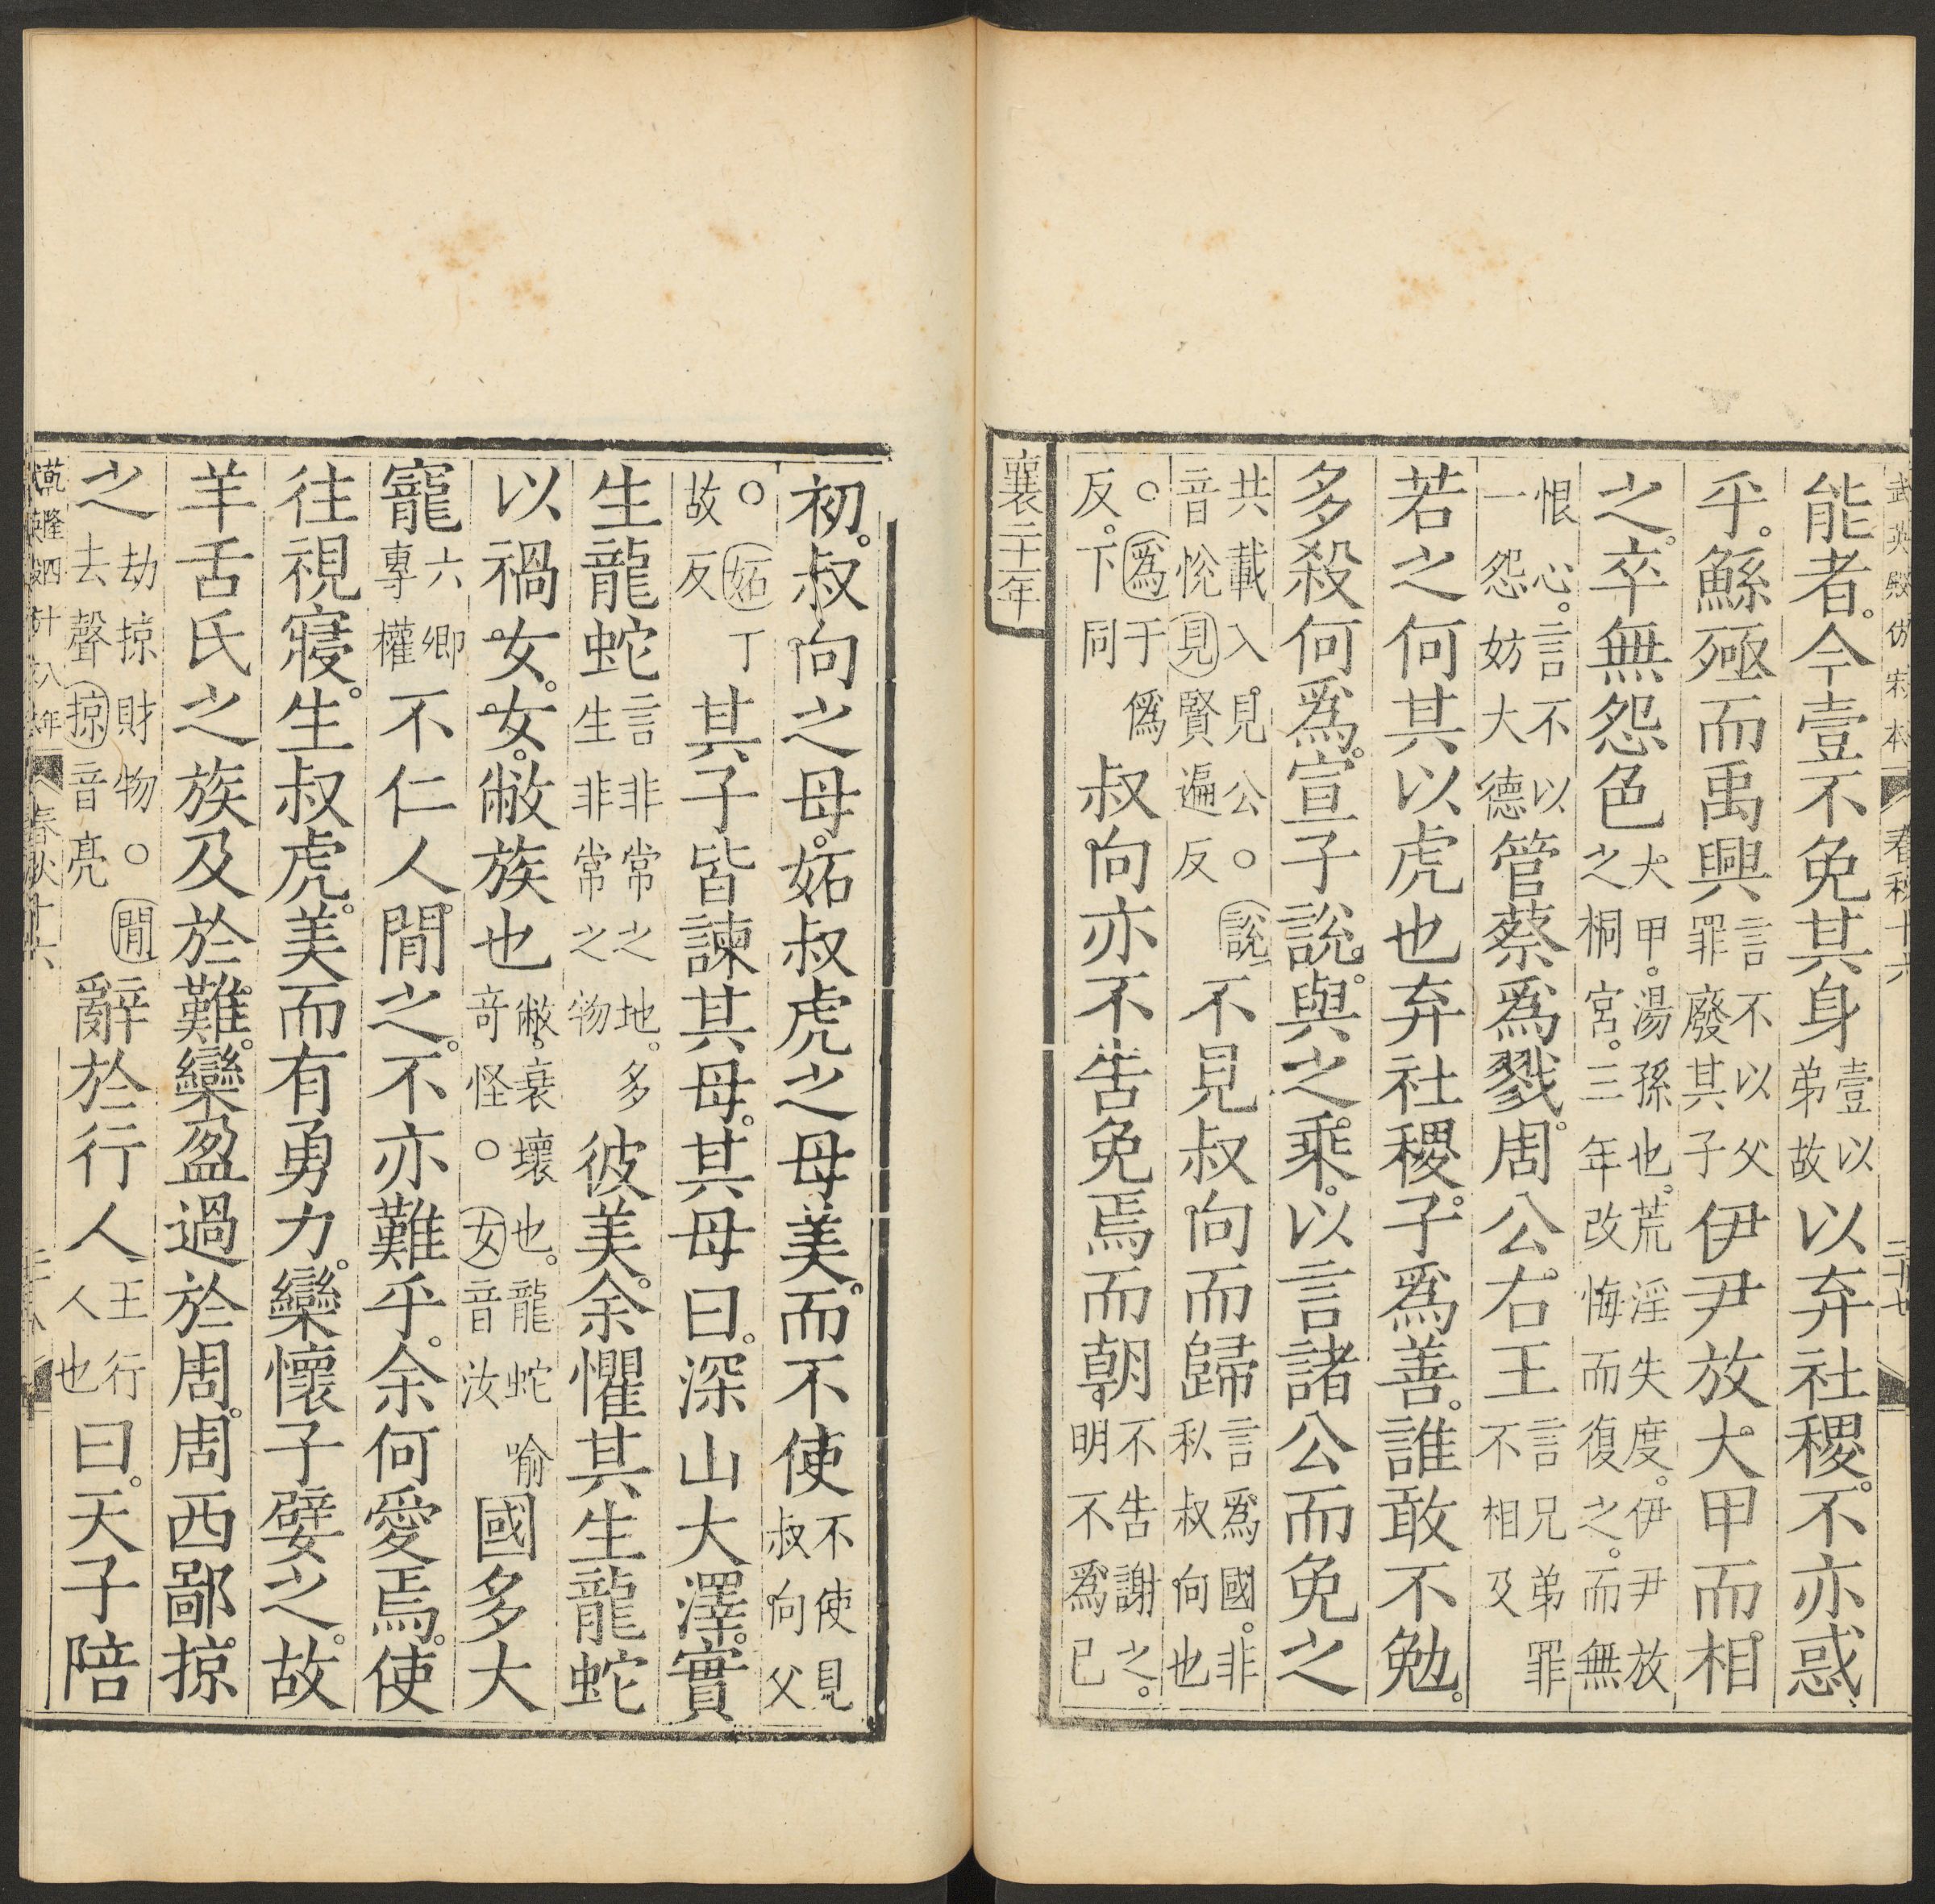 武英殿仿宋本 春秋十六 二十七
能者。今壹不免其身壹以弟故以弃社稷。不亦惑
乎。鯀殛而禹興言不以父罪廢其子伊尹放大甲而相
之。卒無怨色大甲。湯孫也。荒淫失度。伊尹放之桐宮。三年改悔而復之。而無
恨心。言不以一怨妨大德管蔡爲戮。周公右王言兄弟罪不相及
若之何其以虎也弃社稷。子爲善。誰敢不勉。
多殺何爲。宣子說。與之乘。以言諸公而免之
共載入。見公○說音恱見賢遍反不見叔向而歸言爲國。非私叔向也
○爲于僞反。下同叔向亦不告免焉而朝不告謝之。明不爲己
襄二十一年
初。叔向之母。妬叔虎之母美。而不使不使見叔向父
○妬丁故反其子皆諫其母。其母曰。深山大澤。實
生龍蛇言非常之地。多生非常之物彼美。余懼其生龍蛇
以禍女。女。敝族也敝。衰壞也。龍蛇喻奇怪○女音汝國多大
寵六卿專權不仁人閒之。不亦難乎。余何愛焉。使
往視寢。生叔虎。美而有勇力。欒懷子嬖之。故
羊舌氏之族及於難。欒盈過於周。周西鄙掠
之劫掠財物○閒去聲掠音亮辭於行人王行人也曰。天子陪
乾隆四十八年 春秋十六 二十八